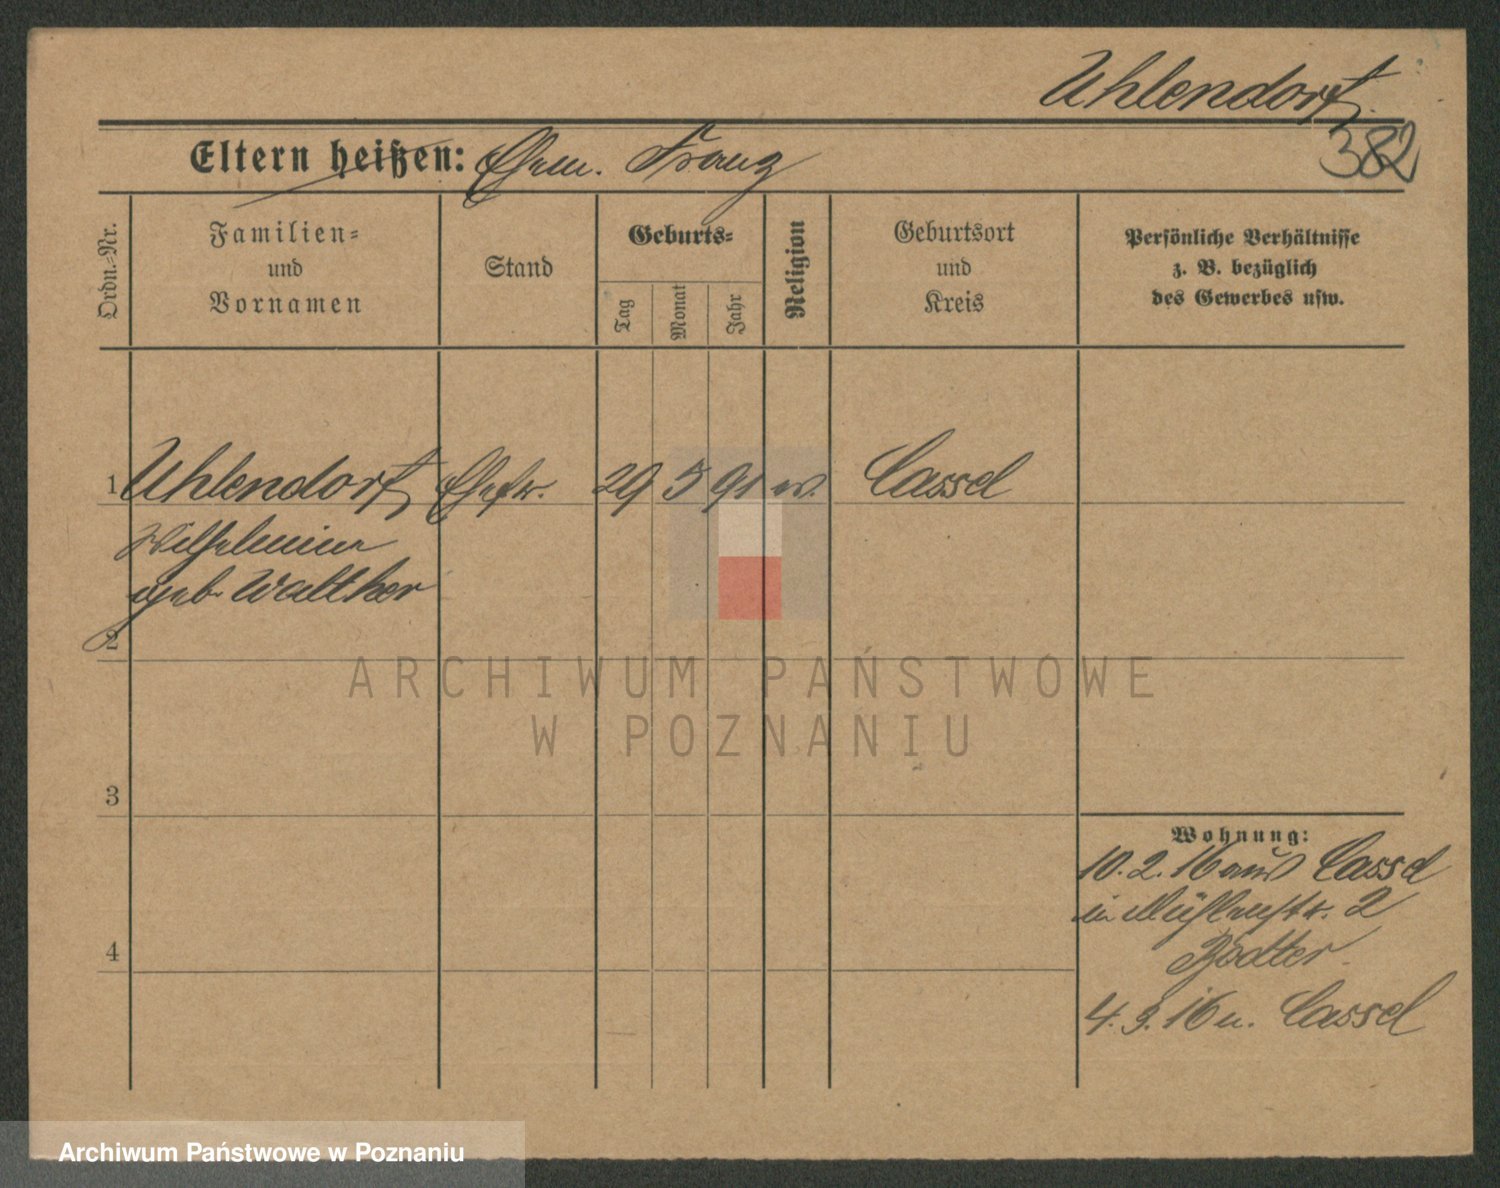 Uhlendorf.
382
Eltern heißen: Ehem. Franz
Ordn.-Nr.
Familien-
und
Vornamen
Stand
Geburts-
Tag
Monat
Jahr
Religion
Geburtsort
und
Kreis
Persönliche Verhältnisse
z. B. bezüglich
des Gewerbes usw.
1 Uhlendorf Ehefr. 29 5 91 ev. Cassel
Wilhelmine
geb. Walther
2
3
4
Wohnung:
10.2.16 aus Cassel
in Mühlenstr. 2
4.3.16 n. Cassel
ARCHIWUM PAŃSTWOWE
W POZNANIU
Archiwum Państwowe w Poznaniu